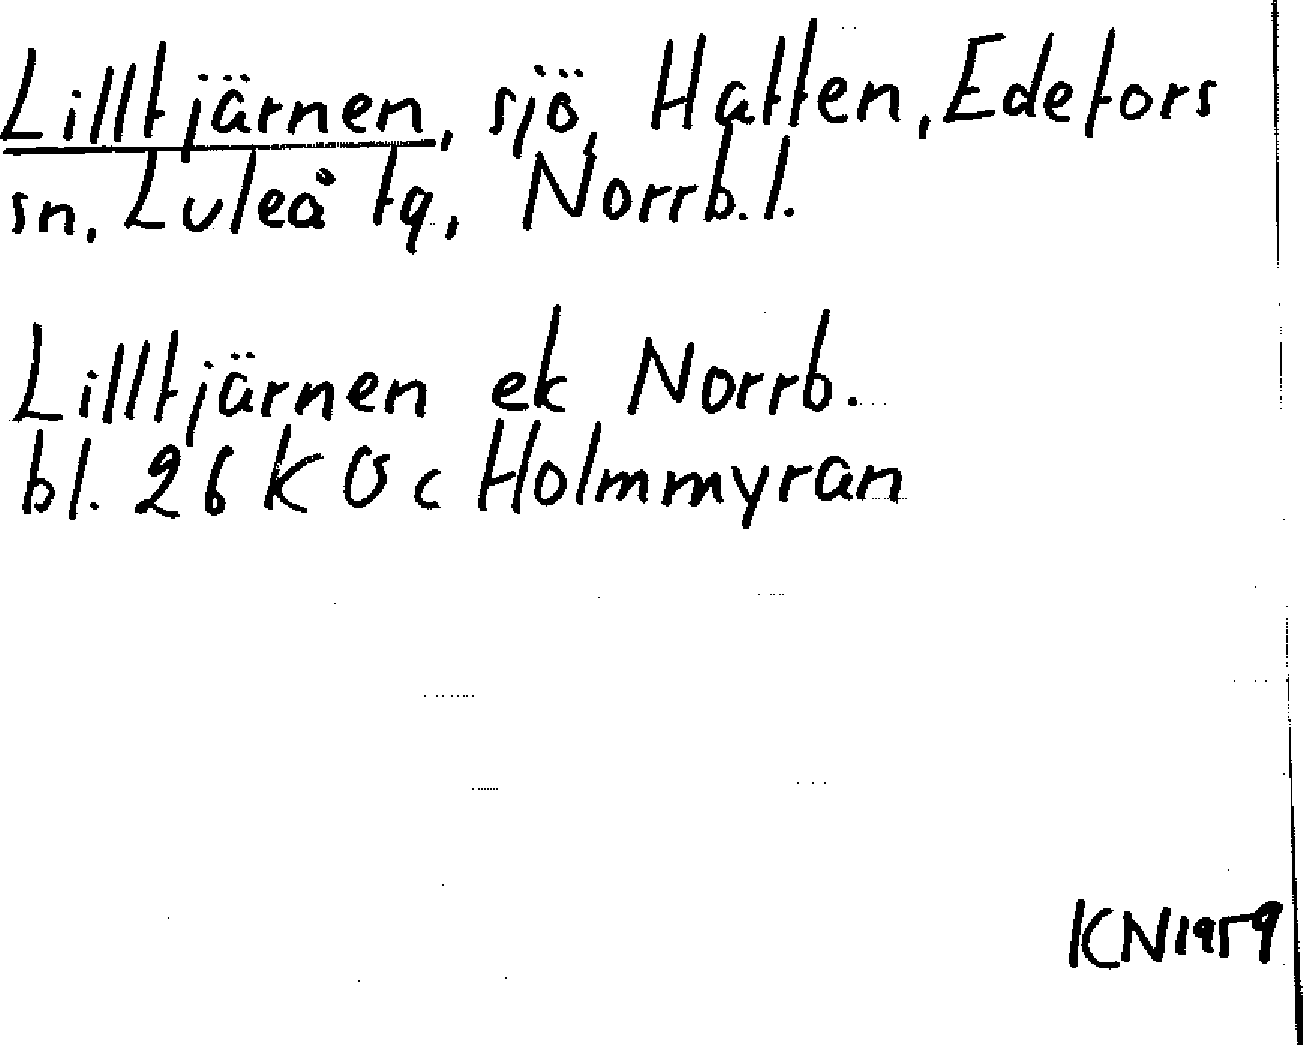 Lilltjärnen, sjö, Hatten, Edefors
sn, Luleå tg, Norrb.l.
Lilltjärnen ek Norrb.
bl. 26 K Ö c Holmmyran
KN 1959